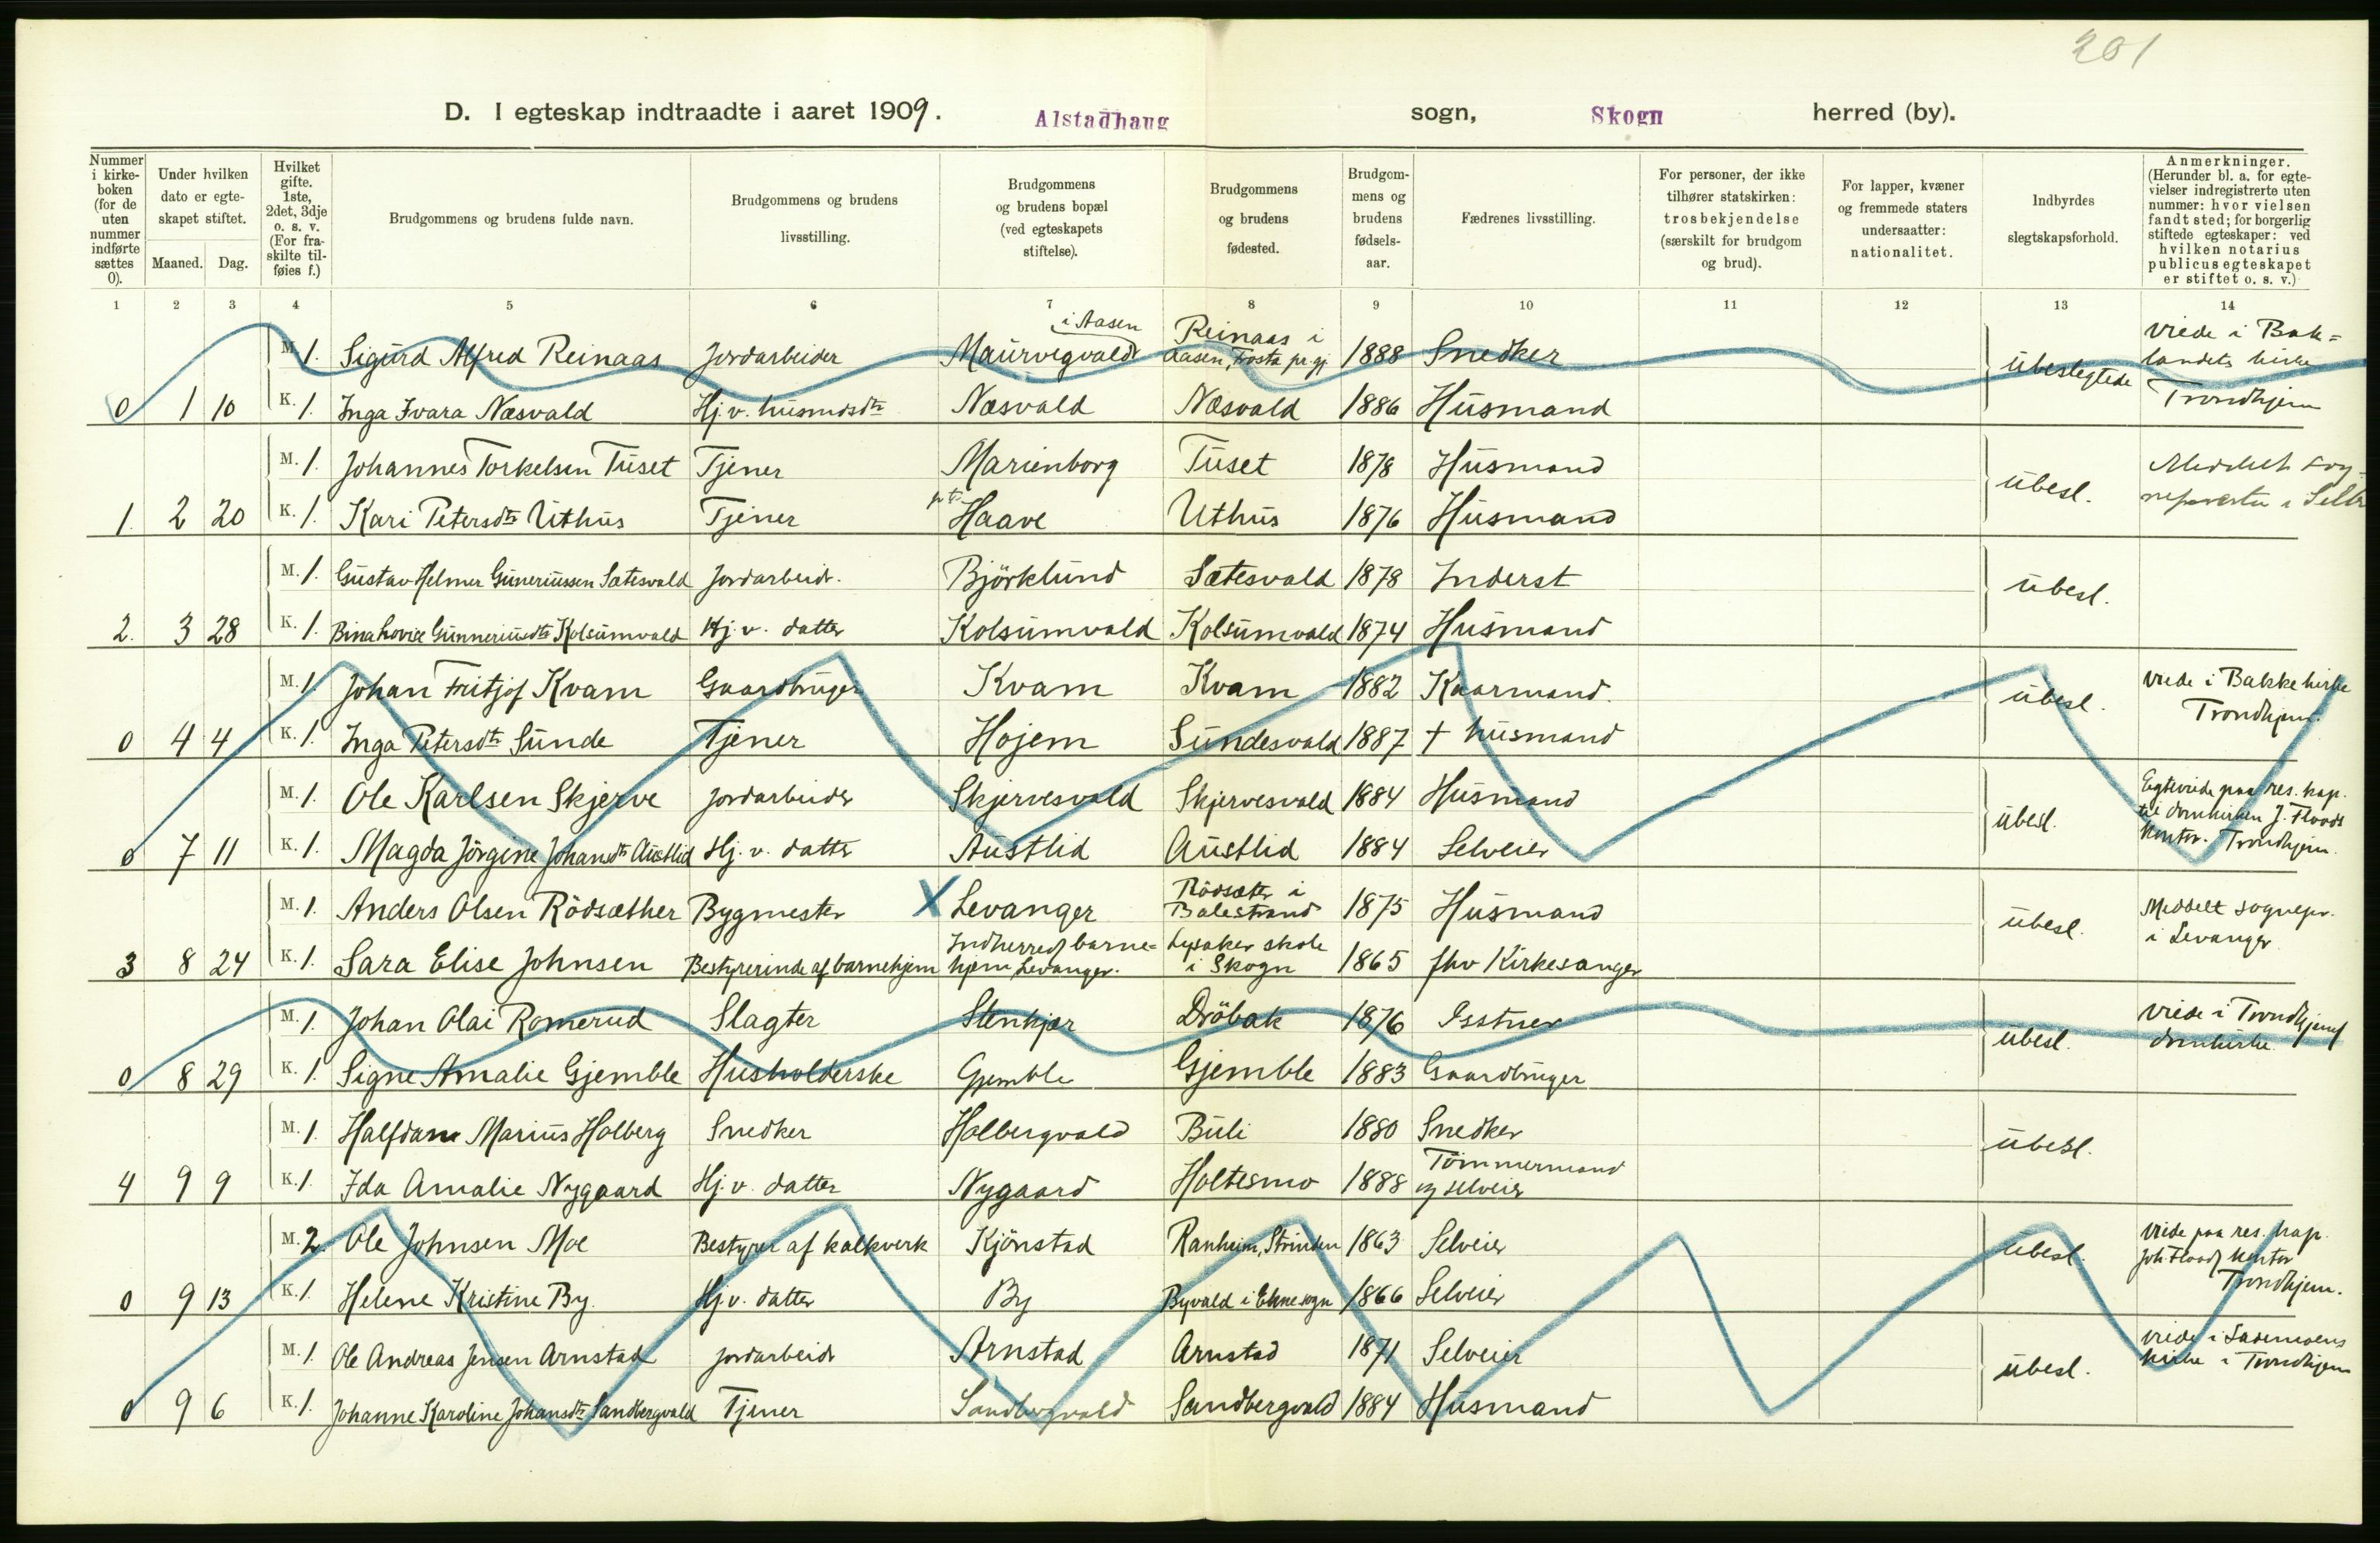 201
D. I egteskap indtraadte i aaret 1909. Alstadhaug sogn, Skogn herred (by).
Nummer i kirkeboken (for de uten nummer indførte sættes 0).
Under hvilken dato er egteskapet stiftet.
Maaned. Dag.
Hvilket gifte. 1ste, 2det, 3dje o. s. v. (For fraskilte tilføies f.)
Brudgommens og brudens fulde navn.
Brudgommens og brudens livsstilling.
Brudgommens og brudens bopæl (ved egteskapets stiftelse).
Brudgommens og brudens fødested.
Brudgommens og brudens fødselsaar.
Fædrenes livsstilling.
For personer, der ikke tilhører statskirken: trosbekjendelse (særskilt for brudgom og brud).
For lapper, kvæner og fremmede staters undersaatter: nationalitet.
Indbyrdes slegtskapsforhold.
Anmerkninger. (Herunder bl. a. for egtevielser indregistrerte uten nummer: hvor vielsen fandt sted; for borgerlig stiftede egteskaper: ved hvilken notarius publicus egteskapet er stiftet o. s. v.)
1 2 3 4 5 6 7 8 9 10 11 12 13 14
M. 1. Sigurd Alfred Reinaas Jordarbeider Maurvegvald i Aasen Reinaas i Aasen, Frosta pr.gj 1888 Snedker ubeslegtede viede i Baklandets kirke Trondhjem
0 1 10 K. 1. Inga Ivara Næsvald Hj. v. husmdsdtr Næsvald Næsvald 1886 Husmand
M. 1. Johannes Torkelsen Tuset Tjener Marienborg Tuset 1878 Husmand ubesl. Meddelt i Selbu
1. 2 20 K. 1. Kari Petersdtr Uthus Tjener Haave Uthus 1876 Husmand
M. 1. Gustav Helmer Guneriussen Sætesvald Jordarbeidr. Björklund Sætesvald 1878 Inderst ubesl.
2. 3 28 K. 1. Bina Lovise Gunneriusdtr Kolsumvald Hj. v. datter Kolsumvald Kolsumvald 1874 Husmand
M. 1. Johan Fritjof Kvam Gaardbruger Kvam Kvam 1882 Kaarmand. ubesl. viede i Bakke kirke Trondhjem.
0 4 4 K. 1. Inga Petersdtr Sunde Tjener Hojem Sundesvald 1887 † husmand
M. 1. Ole Karlsen Skjerve Jordarbeider Skjervesvald Skjervesvald 1884 Husmand ubesl. Egteviede paa res. kap. til domkirken J. Floods kontor. Trondhjem.
0 7 11 K. 1. Magda Jörgine Johansdtr Austlid Hj. v. datter Austlid Austlid 1884 Selveier
M. 1. Anders Olsen Rödsæther Bygmester X Levanger Rödsæter i Balestrand 1875 Husmand ubesl. Meddelt sognepr. i Levanger
3 8 24 K. 1. Sara Elise Johnsen Bestyrerinde af barnehjem Indherreds barnehjem Levanger. Lysaker skole i Skogn 1865 fhv Kirkesanger
M. 1. Johan Olai Romerud Slagter Stenkjær Dröbak 1876 ubesl. viede i Trondhjems domkirke.
0 8 29 K. 1. Signe Amalie Gjemble Husholderske Gjemble Gjemble 1883 Gaardbruger
M. 1. Halfdan Marius Holberg Snedker Holbergvald Buli 1880 Snedker ubesl.
4 9 9 K. 1. Ida Amalie Nygaard Hj. v. datter Nygaard Holtesmo 1888 Tömmermand og selveier
M. 2. Ole Johnsen Moe Bestyrer af kalkverk Kjönstad Ranheim, Strinden 1863 Selveier ubesl. viede paa res. kap. Joh. Floods kontor Trondhjem.
0 9 13 K. 1. Helene Kristine By. Hj. v. datter By Byvald i Ekne sogn 1866 Selveier
M. 1. Ole Andreas Jensen Arnstad Jordarbeidr Arnstad Arnstad 1871 Selveier ubesl. viede i Lademoens kirke i Trondhjem
0 9 6 K. 1. Johanne Karoline Johansdtr Sandbergvald Tjener Sandbergvald Sandbergvald 1884 Husmand